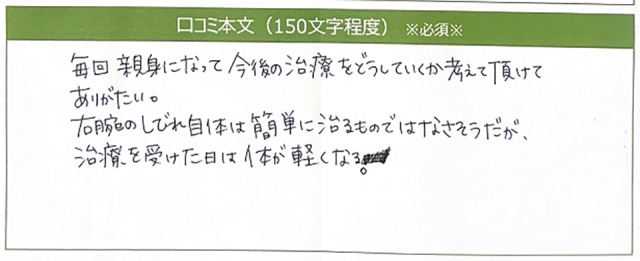 口コミ本文（150文字程度）※必須※
毎回親身になって今後の治療をどうしていくか考えて頂けて
ありがたい。
右腕のしびれ自体は簡単に治るものではなさそうだが、
治療を受けた日は体が軽くなる。